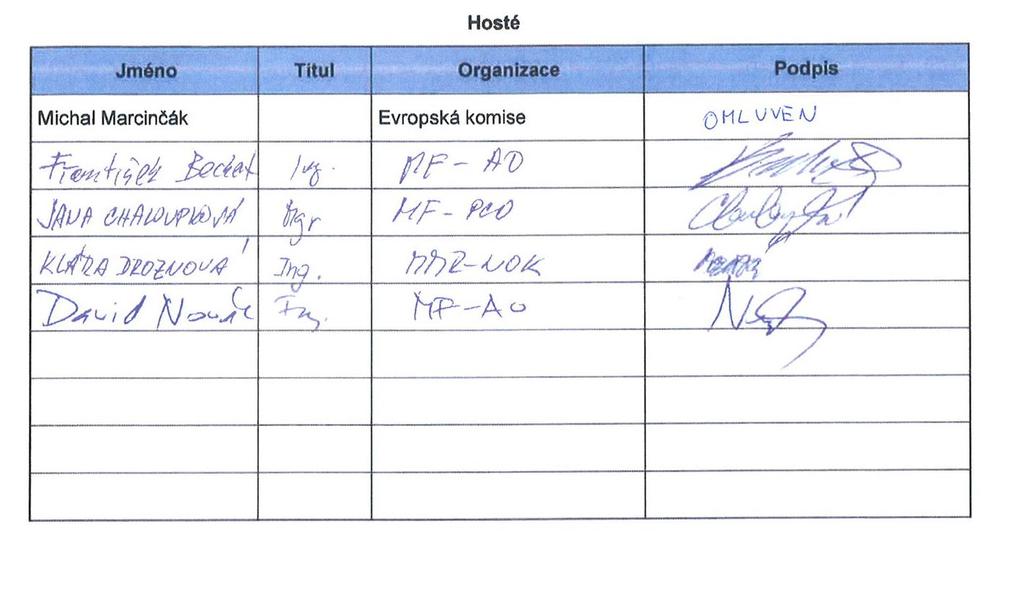 Hosté
Jméno Titul Organizace Podpis
Michal Marcinčák Evropská komise OMLUVEN
František Bechat Ing. MF - AO
JANA CHALOUPKOVÁ Mgr MF - PCO
KLÁRA DROZNOVÁ Ing. MMR-NOK
David Novák Ing. MF-AO